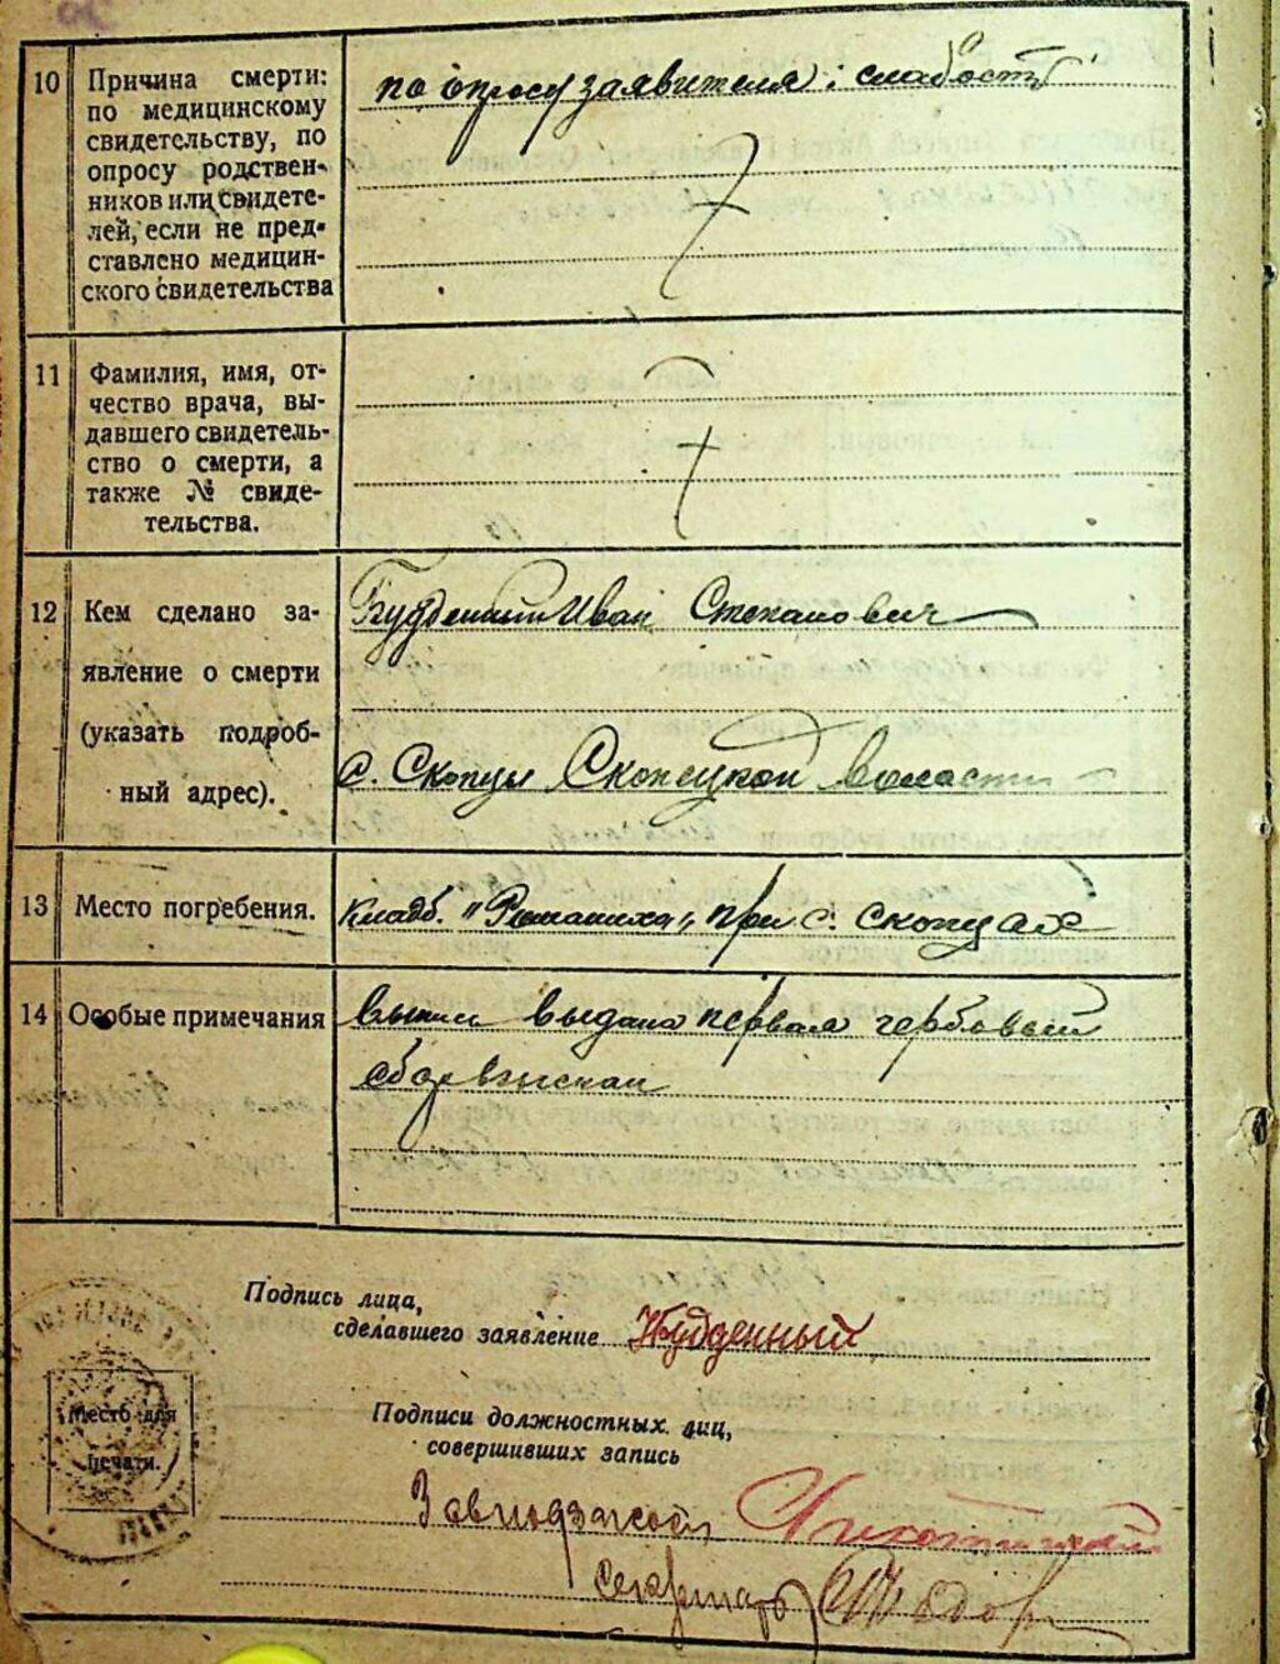 10
Причина смерти:
по медицинскому
свидетельству, по
опросу родствен-
ников или свидете-
лей, если не пред-
ставлено медицин-
ского свидетельства
по опросу заявителя: слабость
11
Фамилия, имя, от-
чество врача, вы-
давшего свидетель-
ство о смерти, а
также № свиде-
тельства.
12
Кем сделано за-
явление о смерти
(указать подроб-
ный адрес).
Иван Степанович
с. Скопцы Скопецкой волости
13
Место погребения.
Кладб. "Ромашиха", при с. Скопцах
14
Особые примечания
Выпись выдана первая гербовый
сбор взыскан
Подпись лица,
сделавшего заявление
Подписи должностных лиц,
совершивших запись
Место для
печати.
Завподзагсом
Секретарь